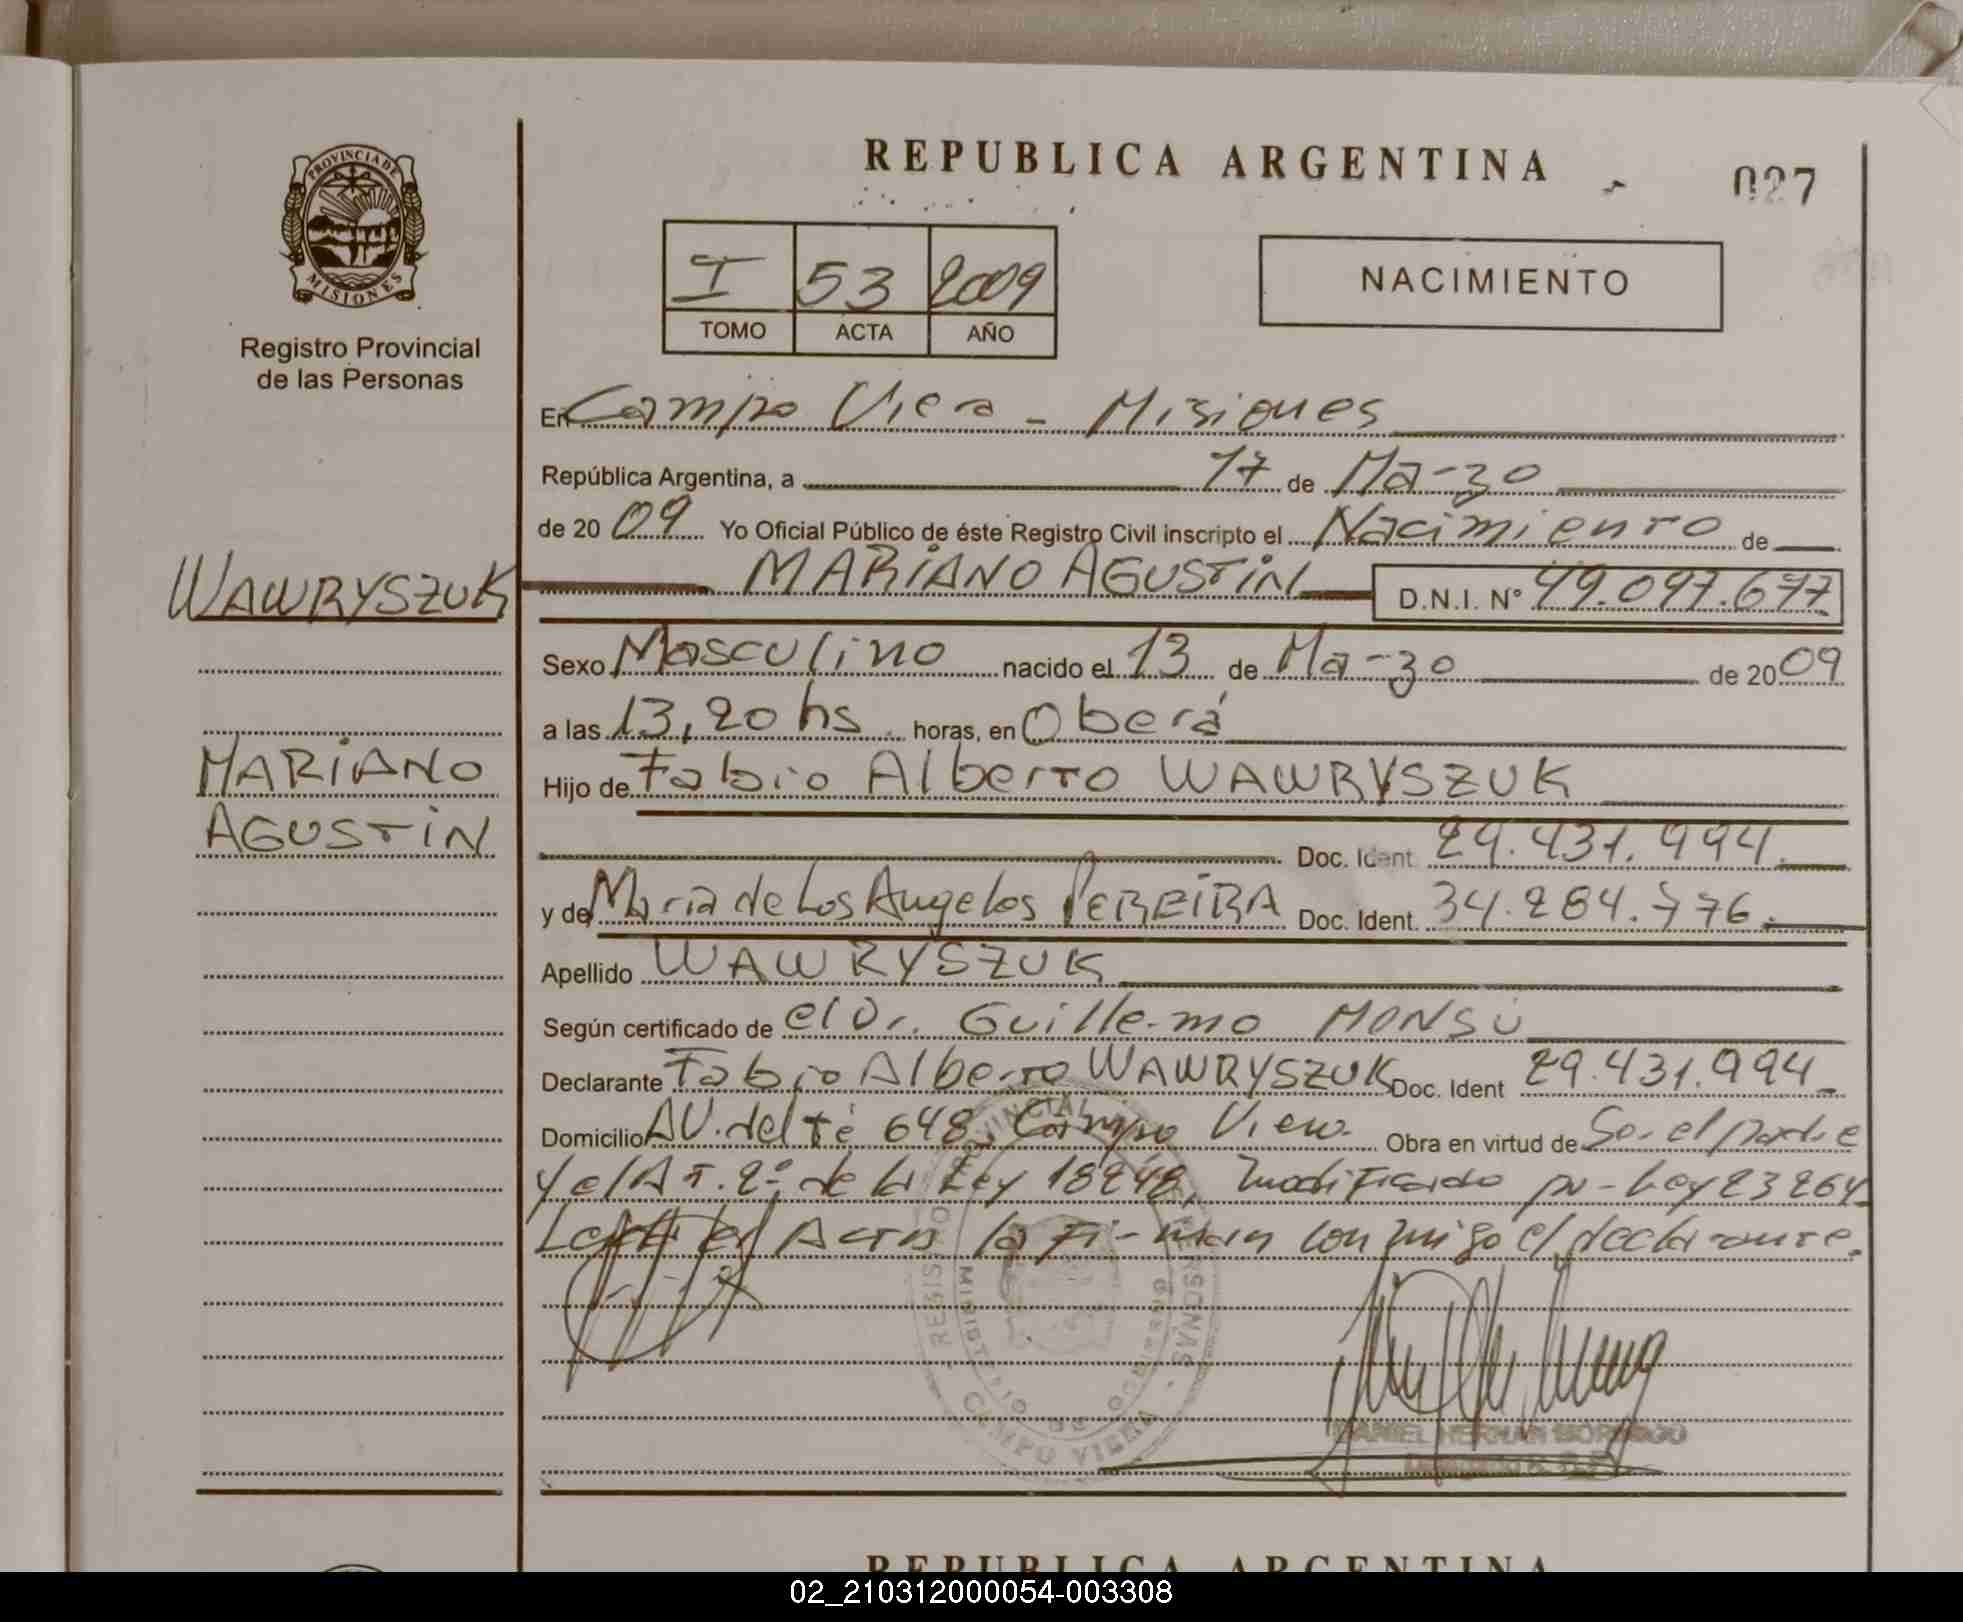 REPUBLICA ARGENTINA
027
PROVINCIA DE
MISIONES
Registro Provincial
de las Personas
I 53 2009
TOMO ACTA AÑO
NACIMIENTO
En Campo Viera - Misiones
República Argentina, a 17 de Marzo
de 2009 Yo Oficial Público de éste Registro Civil inscripto el Nacimiento de
WAWRYSZUK
MARIANO AGUSTIN D.N.I. Nº 49.097.677
Sexo Masculino nacido el 13 de Marzo de 2009
a las 13,20 hs horas, en Oberá
MARIANO
AGUSTIN
Hijo de Fabio Alberto WAWRYSZUK
Doc. Ident. 29.431.994.
y de Maria de Los Angeles PEREIRA Doc. Ident. 34.284.776.
Apellido WAWRYSZUK
Según certificado de el Dr. Guillermo MONSÚ
Declarante Fabio Alberto WAWRYSZUK Doc. Ident 29.431.994
Domicilio AV. del té 648, Campo Viera. Obra en virtud de Ser el padre
y el Art. 2º de la Ley 18248, modificado por Ley 23264
Leída el Acta la firman conmigo el declarante.
REGISTRO PROVINCIAL PERSONAS
MINISTERIO DE GOBIERNO
CAMPO VIERA
DANIEL HERNAN
REPUBLICA ARGENTINA
02_210312000054-003308